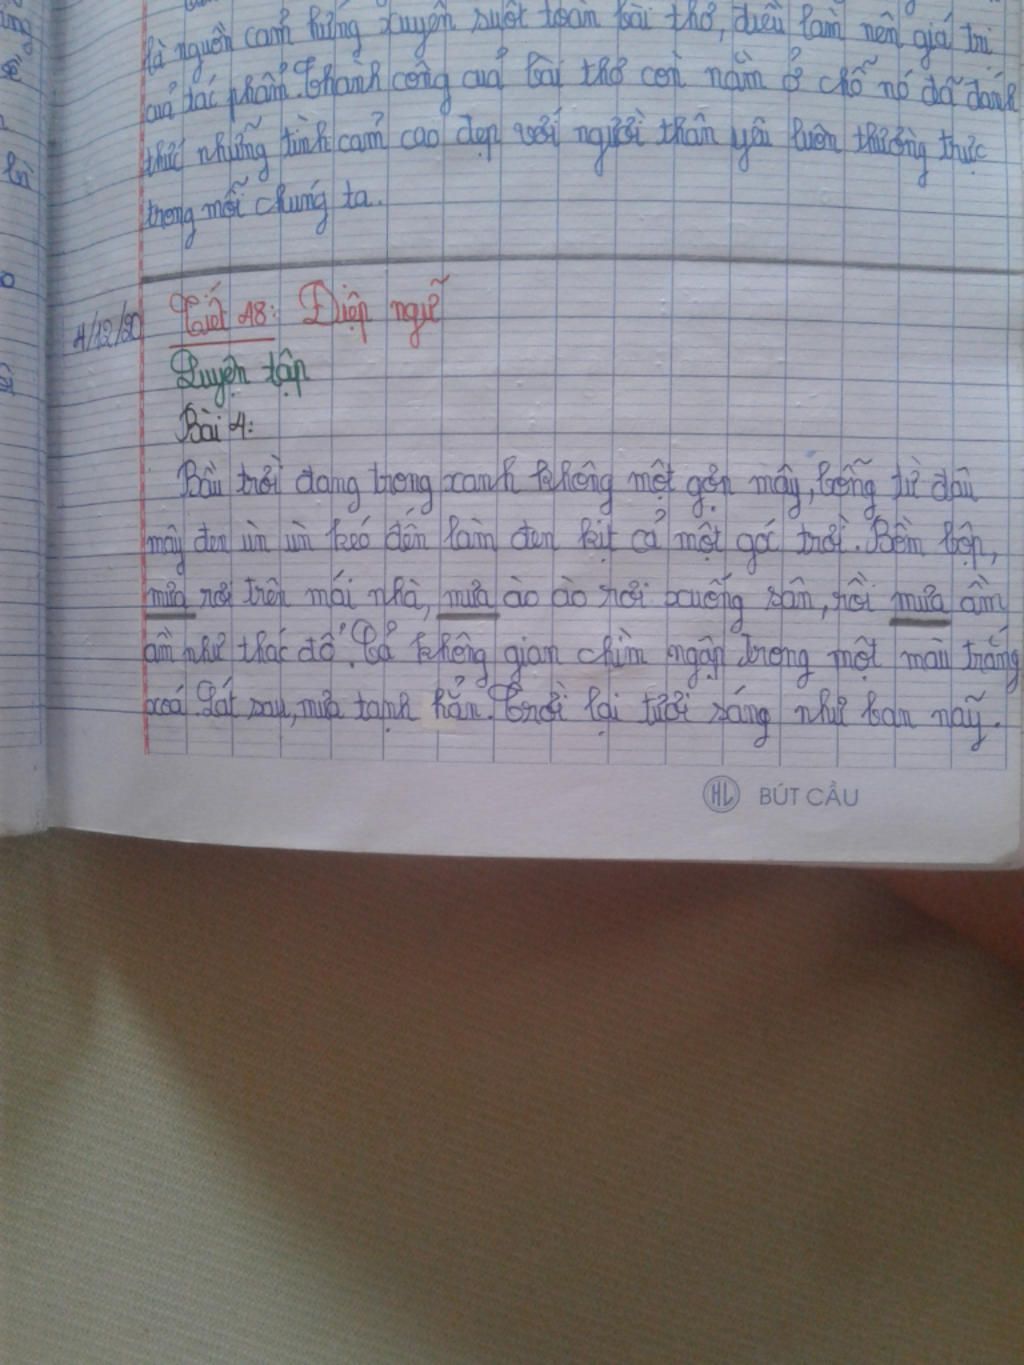 là nguồn cảm hứng xuyên suốt toàn bài thơ, điều làm nên giá trị
của tác phẩm. Thành công của bài thơ còn nằm ở chỗ nó đã đánh
thức những tình cảm cao đẹp với người thân yêu luôn thường thực
trong mỗi chúng ta.
4/12/20 Tiết 48: Điệp ngữ
Luyện tập
Bài 4:
Bầu trời đang trong xanh không một gợn mây, bỗng từ đâu
mây đen ùn ùn kéo đến làm đen kịt cả một góc trời. Bồm bộp,
mưa rơi trên mái nhà, mưa ào ào rơi xuống sân, rồi mưa ầm
ầm như thác đổ. Cả không gian chìm ngập trong một màu trắng
xoá. Lát sau, mưa tạnh hẳn. Trời lại tươi sáng như ban nãy.
HL BÚT CẦU